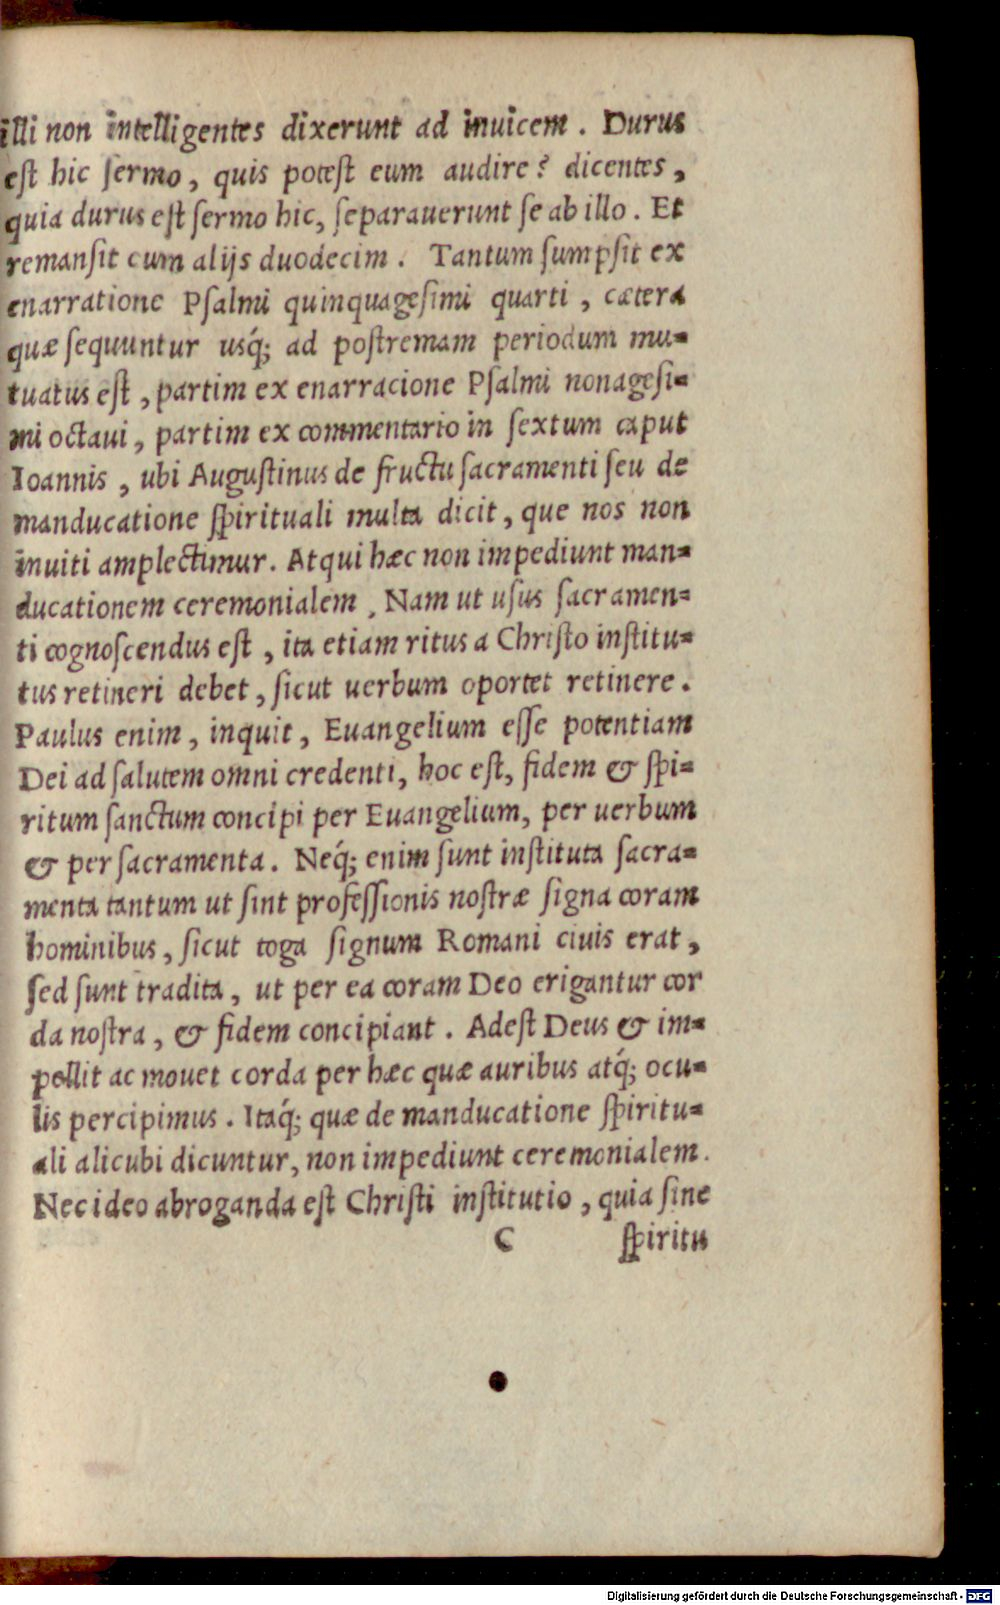 illi non intelligentes dixerunt ad inuicem . Durus
eſt hic ſermo, quis poteſt eum audire? dicentes,
quia durus eſt ſermo hic, ſeparauerunt ſe ab illo. Et
remanſit cum alijs duodecim. Tantum ſumpſit ex
enarratione Pſalmi quinquageſimi quarti, cætera
quæ ſequuntur uſq́; ad poſtremam periodum mu=
tuatus eſt, partim ex enarracione Pſalmi nonageſi=
mi octaui, partim ex commentario in ſextum caput
Ioannis, ubi Auguſtinus de fructu ſacramenti ſeu de
manducatione ſpirituali multa dicit, que nos non
inuiti amplectimur. Atqui hæc non impediunt man=
ducationem ceremonialem. Nam ut uſus ſacramen=
ti cognoſcendus eſt, ita etiam ritus a Chriſto inſtitu=
tus retineri debet, ſicut uerbum oportet retinere.
Paulus enim, inquit, Euangelium eſſe potentiam
Dei ad ſalutem omni credenti, hoc eſt, fidem & ſpi=
ritum ſanctum concipi per Euangelium, per uerbum
& per ſacramenta. Neq́; enim ſunt inſtituta ſacra=
menta tantum ut ſint profeſſionis noſtræ ſigna coram
hominibus, ſicut toga ſignum Romani ciuis erat,
ſed ſunt tradita, ut per ea coram Deo erigantur cor
da noſtra, & fidem concipiant. Adeſt Deus & im=
pellit ac mouet corda per hæc quæ auribus atq́; ocu=
lis percipimus. Itaq́; quæ de manducatione ſpiritu=
ali alicubi dicuntur, non impediunt ceremonialem.
Nec ideo abroganda eſt Chriſti inſtitutio, quia ſine
C ſpiritu
Digitalisierung gefördert durch die Deutsche Forschungsgemeinschaft - DFG